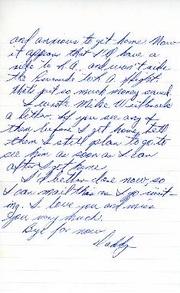 and anxious to get home. Now
it appears that I'll have a
ride to L.A. and won't ride
the Burbank L.A. flight.
that's just so much money saved.
I wrote Mike
a letter. If you see any of
them before I get home, tell
them I still plan to go to
see him as soon as I can
after I get home.
I'd better close now, so
I can mail this as I go visit-
ing. I love you and miss
you very much.
Bye for now
Daddy